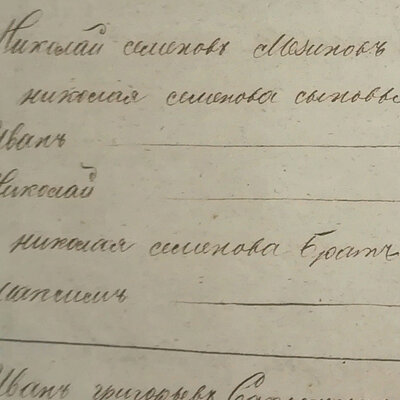 Николай семеновъ Мезиновъ
николая семенова сыновья
Иванъ
Николай
николая семенова братъ
Максимъ
Иванъ григорьевъ